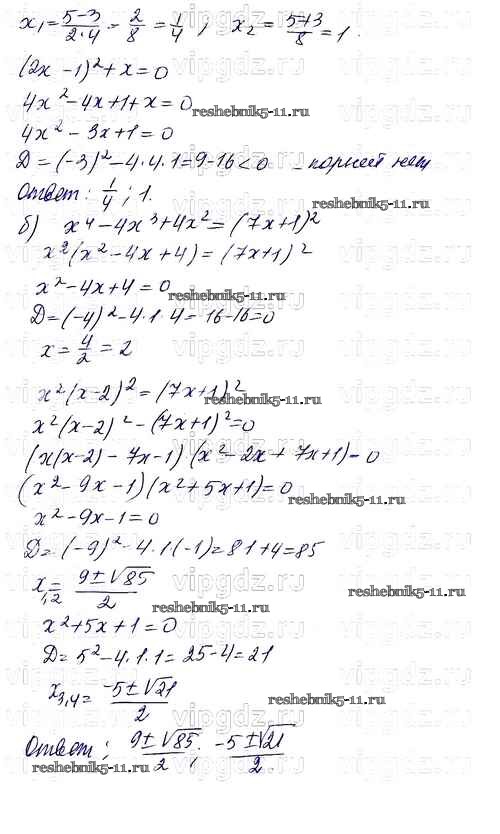 x₁ = (5-3)/(2·4) = 2/8 = 1/4 ; x₂ = (5+3)/8 = 1.
(2x - 1)² + x = 0
4x² - 4x + 1 + x = 0
reshebnik5-11.ru
4x² - 3x + 1 = 0
D = (-3)² - 4·4·1 = 9 - 16 < 0 - корней нет
Ответ: 1/4 ; 1.
б) x⁴ - 4x³ + 4x² = (7x+1)²
x²(x² - 4x + 4) = (7x+1)²
x² - 4x + 4 = 0
reshebnik5-11.ru
D = (-4)² - 4·1·4 = 16 - 16 = 0
x = 4/2 = 2
x²(x-2)² = (7x+1)²
reshebnik5-11.ru
x²(x-2)² - (7x+1)² = 0
(x(x-2) - 7x - 1)(x² - 2x + 7x + 1) = 0
(x² - 9x - 1)(x² + 5x + 1) = 0
reshebnik5-11.ru
x² - 9x - 1 = 0
D = (-9)² - 4·1(-1) = 81 + 4 = 85
x₁,₂ = (9 ± √85)/2
reshebnik5-11.ru
reshebnik5-11.ru
x² + 5x + 1 = 0
D = 5² - 4·1·1 = 25 - 4 = 21
x₃,₄ = (-5 ± √21)/2
reshebnik5-11.ru
Ответ: (9 ± √85)/2 ; (-5 ± √21)/2.
reshebnik5-11.ru